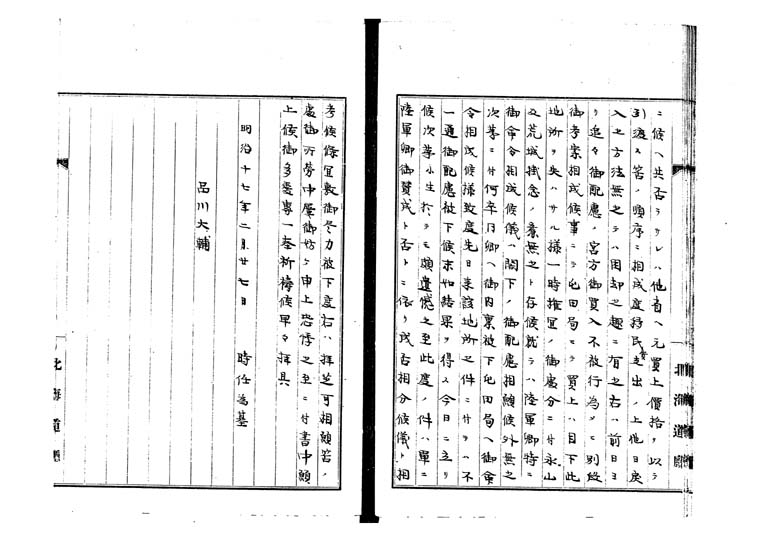 ニ候ヘ共否ラサレハ他者ヘ元買上價格ヲ以テ
引渡ス筈ノ順序ニ相成度移民支出ノ上他日戻
入之方法無之テハ困却之趣ニ有之右ハ前日ヨ
リ追々御配慮ノ宮方御買入不被行為メニ別段
御考案相成候事ニテ屯田局ニテ買上ハ目下此
地所ヲ失ハサル様一時推宜ノ御處分ニ付永山
及荒城掛念ノ意無之ト存候就テハ陸軍卿特ニ
御命令相成候儀ハ閣下ノ御配慮相願候外無之
次第ニ付何卒同卿ヘ御内稟被下屯田局ヘ御命
令相成候様致度先日来該地所之件ニ付テハ不
一通御配慮被下候末如結果ヲ得ス今日ニ立リ
候次第小生於テモ頗遺憾之至此度ノ件ハ單ニ
陸軍卿御賛成ト否トニ依リ成否相分候儀ト相
考候條宜敷御尽力被下度右ハ拝芝可相願筈ノ
處御所勞中屢御妨ケ申上恐悸之至ニ付書中願
上候御多患專一奉祈祷候早々拝具
明治十七年二月廿七日　時任為基
品川大輔
北海道廳